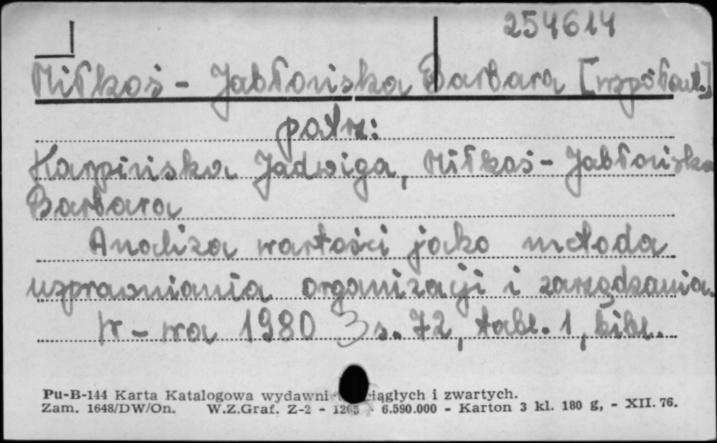 254614
Miłkoś - Jabłońska Barbara [współaut.]
patrz:
Karpińska Jadwiga, Miłkoś - Jabłońska
Barbara
Analiza wartości jako metoda
usprawniania organizacji i zarządzania.
W-wa 1980 s. 72, tabl. 1, bibl.
Pu-B-144 Karta Katalogowa wydawni ciągłych i zwartych.
Zam. 1648/DW/On. W.Z.Graf. Z-2 - 1265 - 6.590.000 - Karton 3 kl. 180 g, - XII. 76.